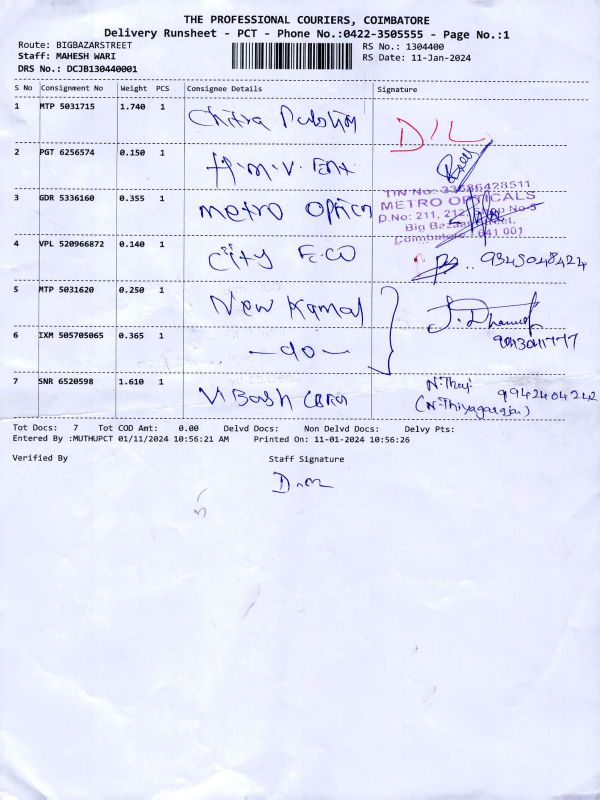 THE PROFESSIONAL COURIERS, COIMBATORE
Delivery Runsheet - PCT - Phone No.:0422-3505555 - Page No.:1
Route: BIGBAZARSTREET
RS No.: 1304400
Staff: MAHESH WARI
RS Date: 11-Jan-2024
DRS No.: DCJB130440001
S No Consignment No Weight PCS Consignee Details Signature
1 MTP 5031715 1.740 1 Chitra D/L
2 PGT 6256574 0.150 1 H.M.V. Ent
3 GDR 5336160 0.355 1 Metro Optien
TIN No: 33686428511
METRO OPTICALS
D.No: 211, 212, Shop No 5
Big Bazaar Street,
Coimbatore - 641 001
4 VPL 520966872 0.140 1 City E.CO 9345048424
5 MTP 5031620 0.250 1 New Kamal
6 IXM 505705065 0.365 1 -do-
7 SNR 6520598 1.610 1 N.Thiyi 9942404242
(N.Thiyagaraja)
Tot Docs: 7 Tot COD Amt: 0.00 Delvd Docs: Non Delvd Docs: Delvy Pts:
Entered By :MUTHUPCT 01/11/2024 10:56:21 AM Printed On: 11-01-2024 10:56:26
Verified By Staff Signature